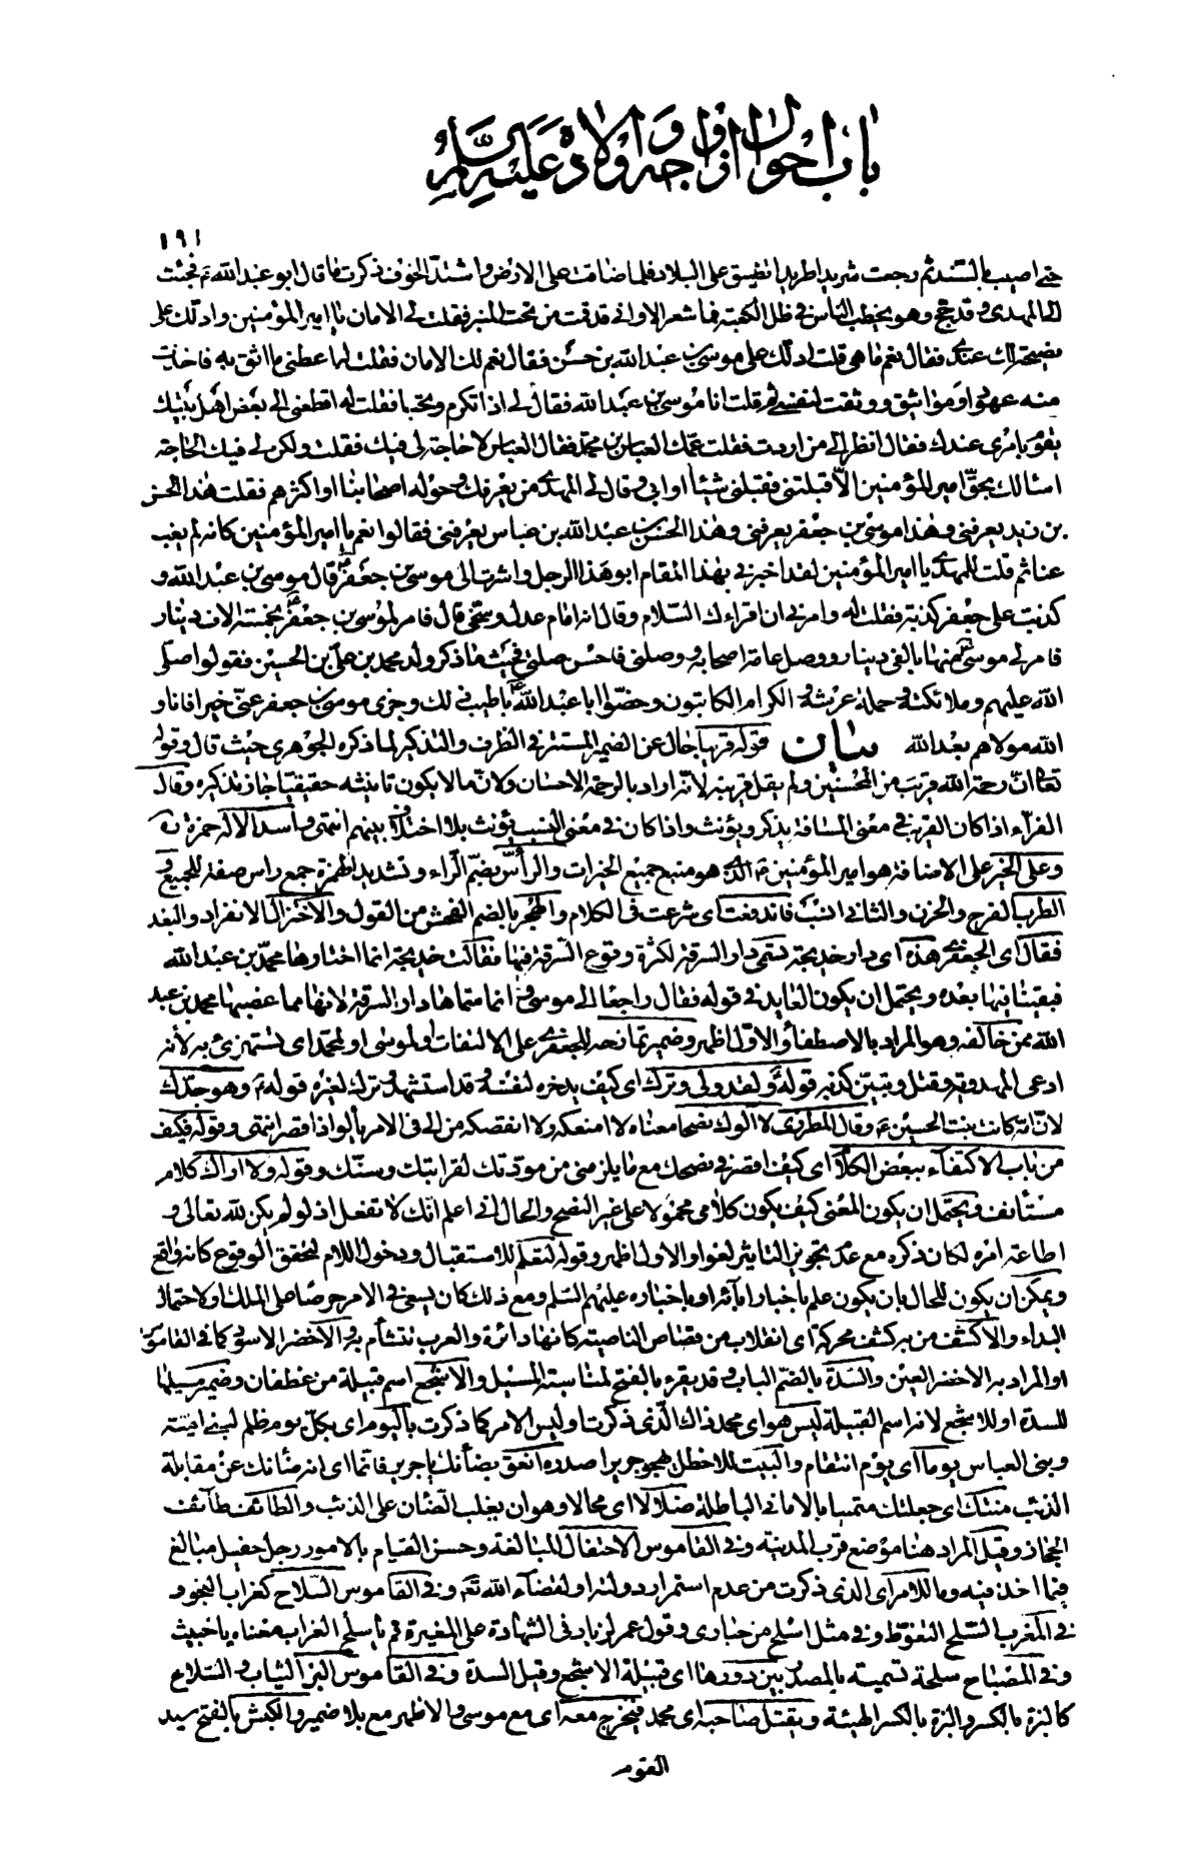 باب احوال ازواجه واولاده عليه السلم
١٩١
حتى اصيب بالسند ثم رجعت شريدا طريدا تضيق على البلاد فلما ضاقت على الارض واشتد الخوف ذكرت ما قال ابو عبد الله ع فجئت
الى المهدى وقد حج وهو يخطب الناس فى ظل الكعبة فما شعر الا وانى قد قمت من تحت المنبر فقلت لى الامان يا امير المؤمنين وادلك على
نصيحة لك عندى فقال نعم ما هى قلت ادلك على موسى بن عبد الله بن حسن فقال نعم لك الامان فقلت له اعطنى ما اثق به فاخذت
منه عهودا ومواثيق ووثقت لنفسى ثم قلت انا موسى بن عبد الله فقال لى اذا تكرم وتحبا فقلت له اقطعنى الى بعض اهل بيتك
يقوم بامرى عندك فقال انظر الى من اردت فقلت عمك العباس بن محمد فقال العباس لا حاجة لى فيك فقلت ولكن لى فيك الحاجة
اسئلك بحق امير المؤمنين الا قبلتنى فقبلنى شيئا او ابى وقال لى المهدى من يعرفك وحوله اصحابنا او اكثرهم فقلت هذا الحسن
بن زيد يعرفنى وهذا موسى بن جعفر يعرفنى وهذا الحسن بن عبد الله بن عباس يعرفنى فقالوا نعم يا امير المؤمنين كانه لم يغب
عنا ثم قلت للمهدى يا امير المؤمنين لقد اخبرنى بهذا المقام ابو هذا الرجل واشرت الى موسى بن جعفر ع قال موسى بن عبد الله و
كذبت على جعفر كذبة فقلت له وامرنى ان اقراءك السلام وقال انه امام عدل وسخى قال فامر لموسى بن جعفر ع بخمسة الاف دينار
فامر لى موسى ع منها بالفى دينار ووصل عامة اصحابه ووصلنى فاحسن صلتى فحيث ما ذكر ولد محمد بن على بن الحسين فقولوا صلى
الله عليهم وملائكته وحملة عرشه والكرام الكاتبون وخصوا ابا عبد الله ع باطيب ذلك وجزى موسى بن جعفر عنى خيرا فانا و
الله مولاهم بعد الله بيان قوله قريبا حال عن الضمير المستتر فى الظرف والتذكير لما ذكره الجوهرى حيث قال وقوله
تعالى ان رحمة الله قريب من المحسنين ولم يقل قريبة لانه اراد بالرحمة الاحسان ولان ما لا يكون تانيثه حقيقيا جاز تذكيره وقال
الفراء اذا كان القريب فى معنى المسافة يذكر ويؤنث واذا كان فى معنى النسب يؤنث بلا اختلاف بينهم انتهى واسد الاله حمزة ره
وعلى الخير على الاضافة هو امير المؤمنين ع الذى هو منبع جميع الخيرات والرأس بضم الراء وتشديد الهمزة جمع راس صفة للجميع و
الطرب الفرح والحزن والثانى انسب فاندفعت اى شرعت فى الكلام والهجر بالضم الفحش من القول والاخزال الانفراد والبعد
فقال اى الجعفرى هذه اى دار خديجة تسمى دار السرقة لكثرة وقوع السرقة فيها فقالت خديجة انما اختارها محمد بن عبد الله
فبقينا فيها بعده ويحتمل ان يكون العايد فى قوله فقال راجعا الى موسى اى انما سماها دار السرقة لانها مما غصبها محمد بن عبد
الله ممن خالفه وهو المراد بالاصطفاء والاول اظهر وضمير تمازحه للجعفرى على الالتفات او لموسى او لمحمد اى تستهزئ به لانه
ادعى المهدوية وقتل وتبين كذبه قوله ولقد ولى وترك اى كيف يدخره لنفسه وقد استشهد وترك لغيره قوله ع وهو جدك
لان امه كانت بنت الحسين ع وقال المطرزى لا آلوك نصحا معناه لا امنعكه ولا انقصكه من الى فى الامر يألو اذا قصر انتهى وقوله فكيف
من باب الاكتفاء ببعض الكلام اى كيف اقصر فى نصحك مع ما يلزمنى من مودتك لقرابتك وسنك وقوله ولا اراك كلام
مستأنف ويحتمل ان يكون المعنى كيف يكون كلامى محمولا على غير النصح والحال انى اعلم انك لا تفعل اذ لو لم يكن لله تعالى و
اطاعة امره لكان ذكره مع عدم تجويز التاثير لغوا والاول اظهر وقوله لتعلم للاستقبال ودخول اللام لتحقق الوقوع كانه واقع
ويمكن ان يكون للحال بان يكون علم باخبار ابائه او باخباره عليهم السلم ومع ذلك كان يسعى فى الامر حرصا على الملك او لاحتمال
البداء والاكشف من به كشف محركة اى انقلاب من قصاص الناصية كانها دائرة والعرب تتشأم به والاخضر الاسود كما فى القاموس
او المراد به الاخضر العين والسدة بالضم الباب وقد يقرء بالفتح لمناسبة المسيل والاشجع اسم قبيلة من غطفان وضمير مسيلها
للسدة او للاشجع لانه اسم القبيلة ليس هو اى محمد ذاك الذى ذكرت او ليس الامر كما ذكرت باليوم اى بكل يوم ظلم لبنى امية
وبنى العباس يوما اى يوم انتقام والبيت للاخطل يهجو جريرا صدره انعق بضأنك يا جرير فانما اى انه ضانك عن مقابلة
الذئب منتك اى جعلتك متمنيا بالامانى الباطلة ضلالا اى محالا وهو ان يغلب الضان على الذئب والطائف طائف
الحجاز وقيل المراد هنا موضع قرب المدينة وفى القاموس الاحتفال المبالغة وحسن القيام بالامور رجل حفيل مبالغ
فيما اخذ فيه وما للامر اى الذى ذكرت من عدم استمرار دولته او لقضاء الله تعم وفى القاموس السلاح كغراب النجو و
فى المغرب السلح التغوط وفى مثل اسلح من حبارى وقول عمر لزياد فى الشهادة على المغيرة قم يا سلح الغراب معناه يا خبيث
وفى المصباح سلحة تسمية بالمصدر بين دورها اى قبيلة الاشجع وقيل السدة وفى القاموس البز الثياب والسلاح
كالبزة بالكسر والبزة بالكسر الهيئة ويقتل صاحبه اى محمد فيخرج معه اى مع موسى والاظهر مع بلا ضمير والكبش بالفتح سيد
القوم